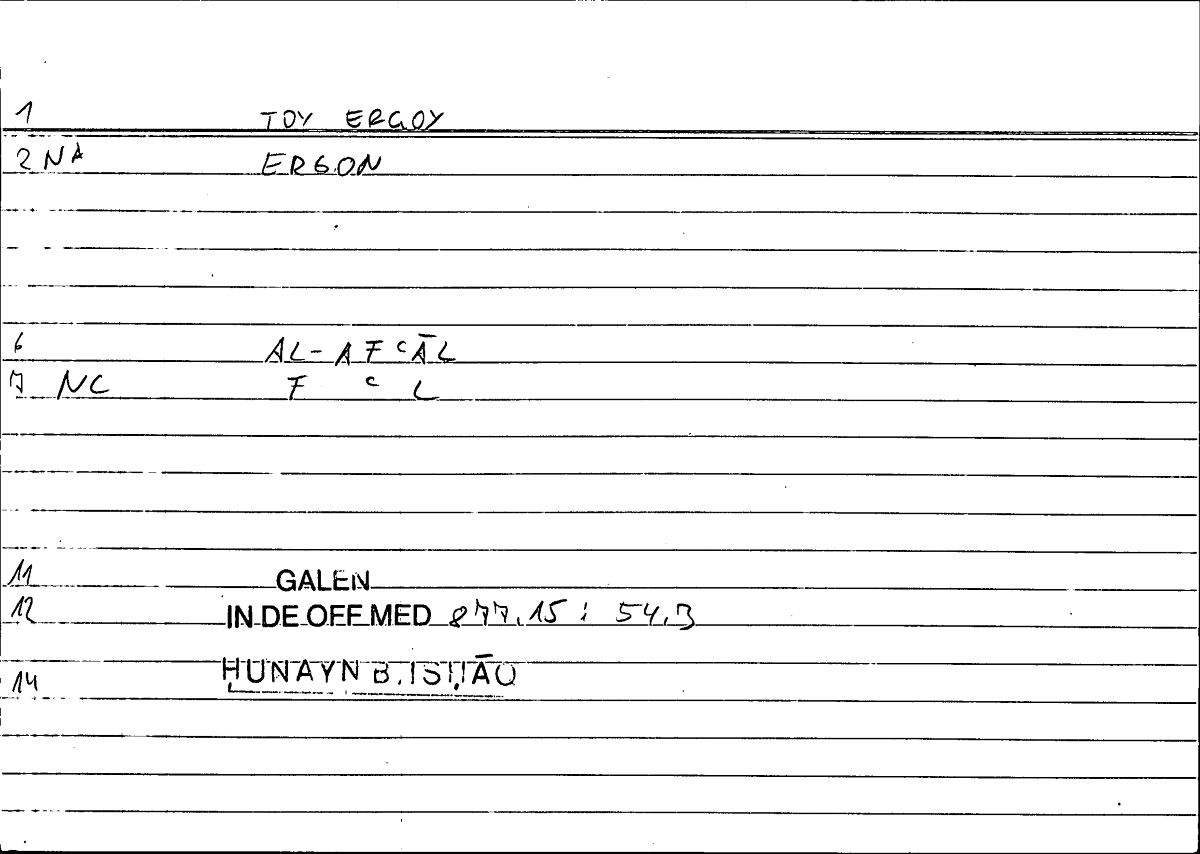 1 TOY ERGOY
2 NA ERGON
6 AL-AFʿĀL
7 NC F ʿ L
11 GALEN
12 IN DE OFF MED 877.15 : 54.3
14 ḤUNAYN B. ISḤĀQ